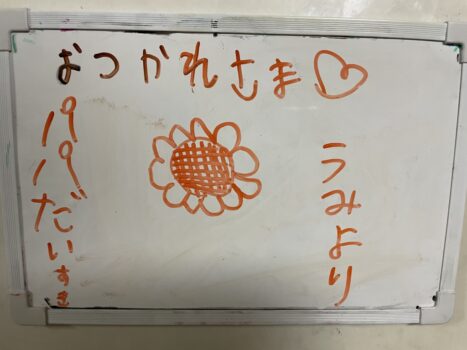 おつかれさま♡
パパだいすき
うみより